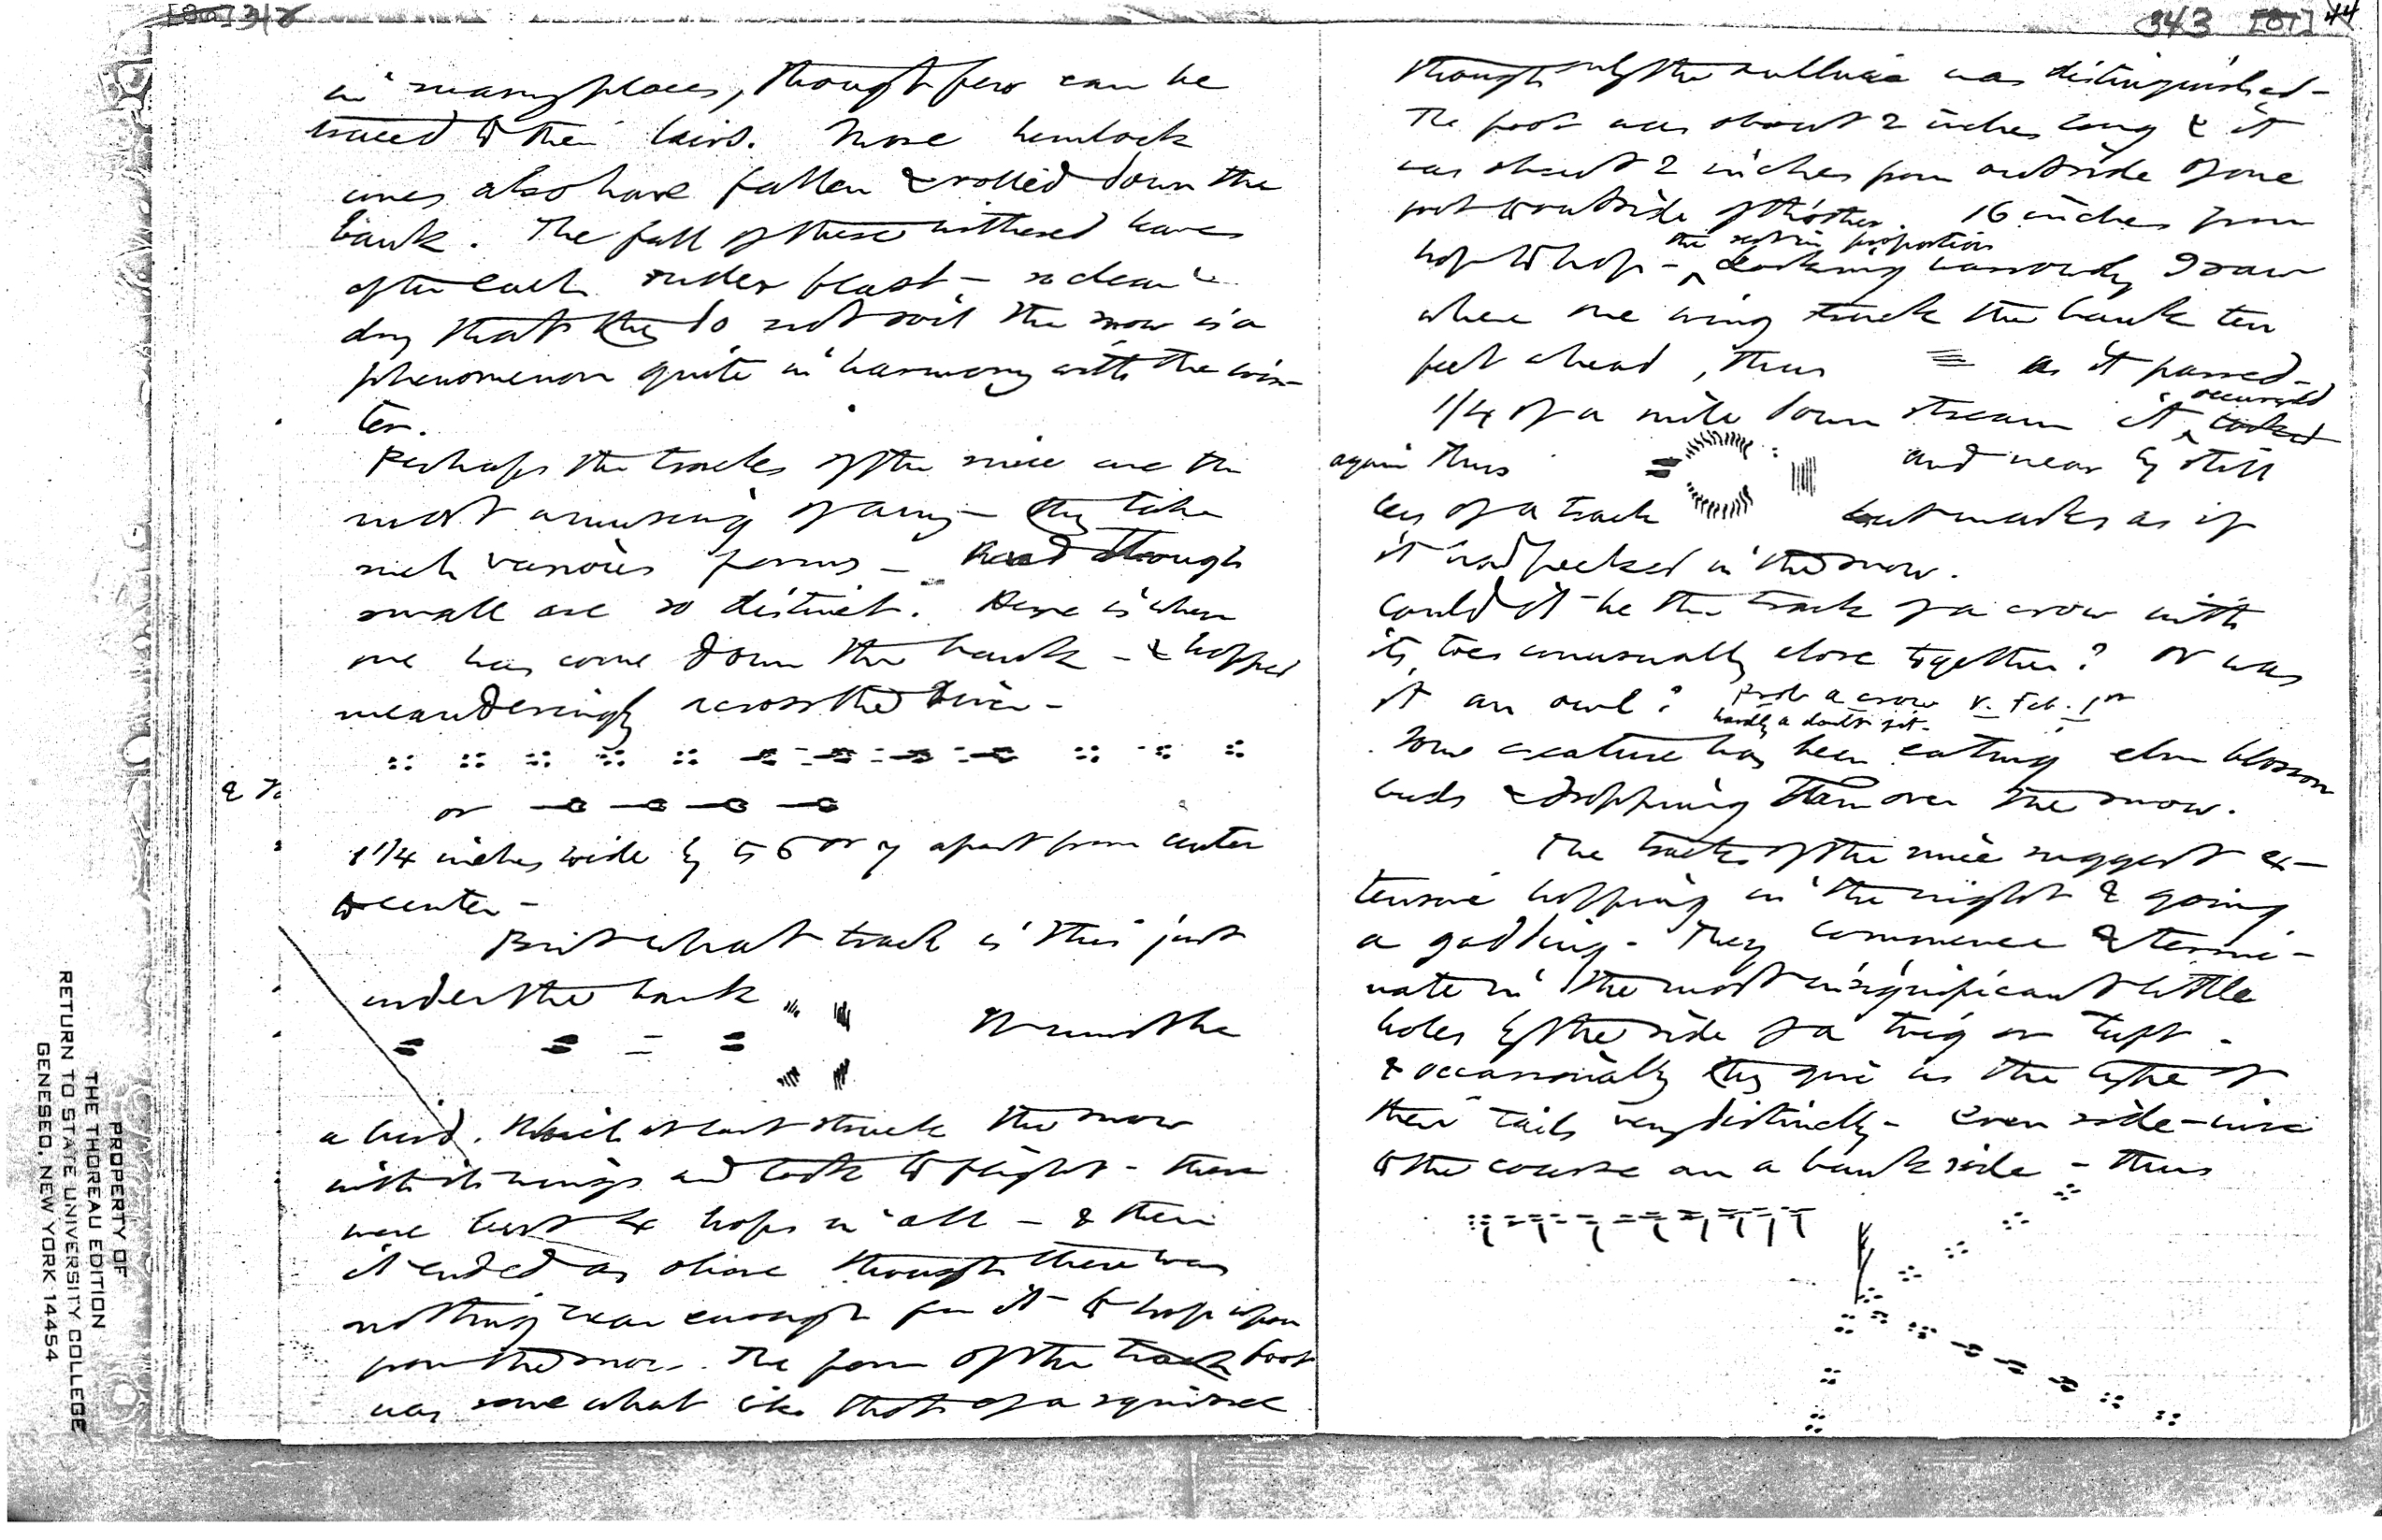 342
in many places, though few can be
traced to their lairs. More hemlock
cones also have fallen & rolled down the
bank. The fall of these withered leaves
after each rude blast — so clean &
dry that they do not soil the snow is a
phenomenon quite in harmony with the win-
ter.
Perhaps the tracks of the mice are the
most amusing of any — they take
such various forms — and though
small are so distinct. Here is where
one has come down the bank — & hopped
meanderingly across the river —
or
1 1/4 inches wide by 5 6 or 7 apart from center
to center —
But what track is this just
under the bank
It must be
a bird. Which at last struck the snow
with its wings and took to flight — there
were but 4 hops in all — & then
it ended as above though there was
nothing near enough for it to hop upon
from the snow. The form of the track foot
was somewhat like that of a squirrel
343 44
though only the outline was distinguished —
The foot was about 2 inches long & it
was about 2 inches from outside of one
foot to outside of the other. 16 inches from
hop to hop — the rest in proportion Looking narrowly I saw
where one wing struck the bank ten
feet ahead, thus as it passed —
1/4 of a mile down stream it occurred
again thus and near by still
less of a track but marks as if
it had pecked in the snow.
Could it be the track of a crow with
its toes unusually close together? Or was
it an owl? Prob a crow v. Feb. 1st
hardly a doubt of it.
Some creature has been eating elm blossom
buds & dropping them over the snow.
The tracks of the mice suggest ex-
tensive hopping in the night & going
a gadding. They commence & termi-
nate in the most insignificant little
holes by the side of a twig or tuft —
& occasionally they give us the type of
their tails very distinctly — even side-wise
to the course on a bank side — thus
PROPERTY OF
THE THOREAU EDITION
RETURN TO STATE UNIVERSITY COLLEGE
GENESEO, NEW YORK 14454